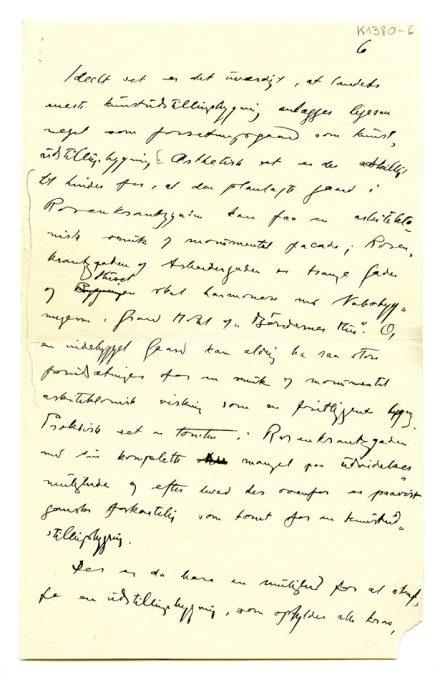 K1380-6
6
Ideelt set er det uværdigt, at landets
eneste kunstudstillingsbygning anlægges ligesaa
meget som forretningsgaard som kunst,
udstillingsbygning [Æsthetisk set er der
til hinder for, at den planlagte gaard i
Rosenkrantzgaten kan faa en arkitekto=
nisk smuk og monumental facade; Rosen,
krantzgaden og Arbeidergaden er trange gader
og Huset skal harmonere med Nabobyg=
ningerne i Grand Hotel og "Bøndernes Hus". Og
en indebygget Gaard kan aldrig ha saa store
forudsætninger for en smuk og monumental
arkitektonisk virkning som en fritliggende bygn.
Praktisk set er tomten i Rosenkrantzgaden
med sin komplette mangel paa udvidelses=
muligheder og efter hvad der ovenfor er paavist
ganske forkastelig som tomt for en kunstud=
stillingsbygning.
Der er da bare en mulighed for at skaf,
fe en udstillingsbygning, som opfylder alle krav,